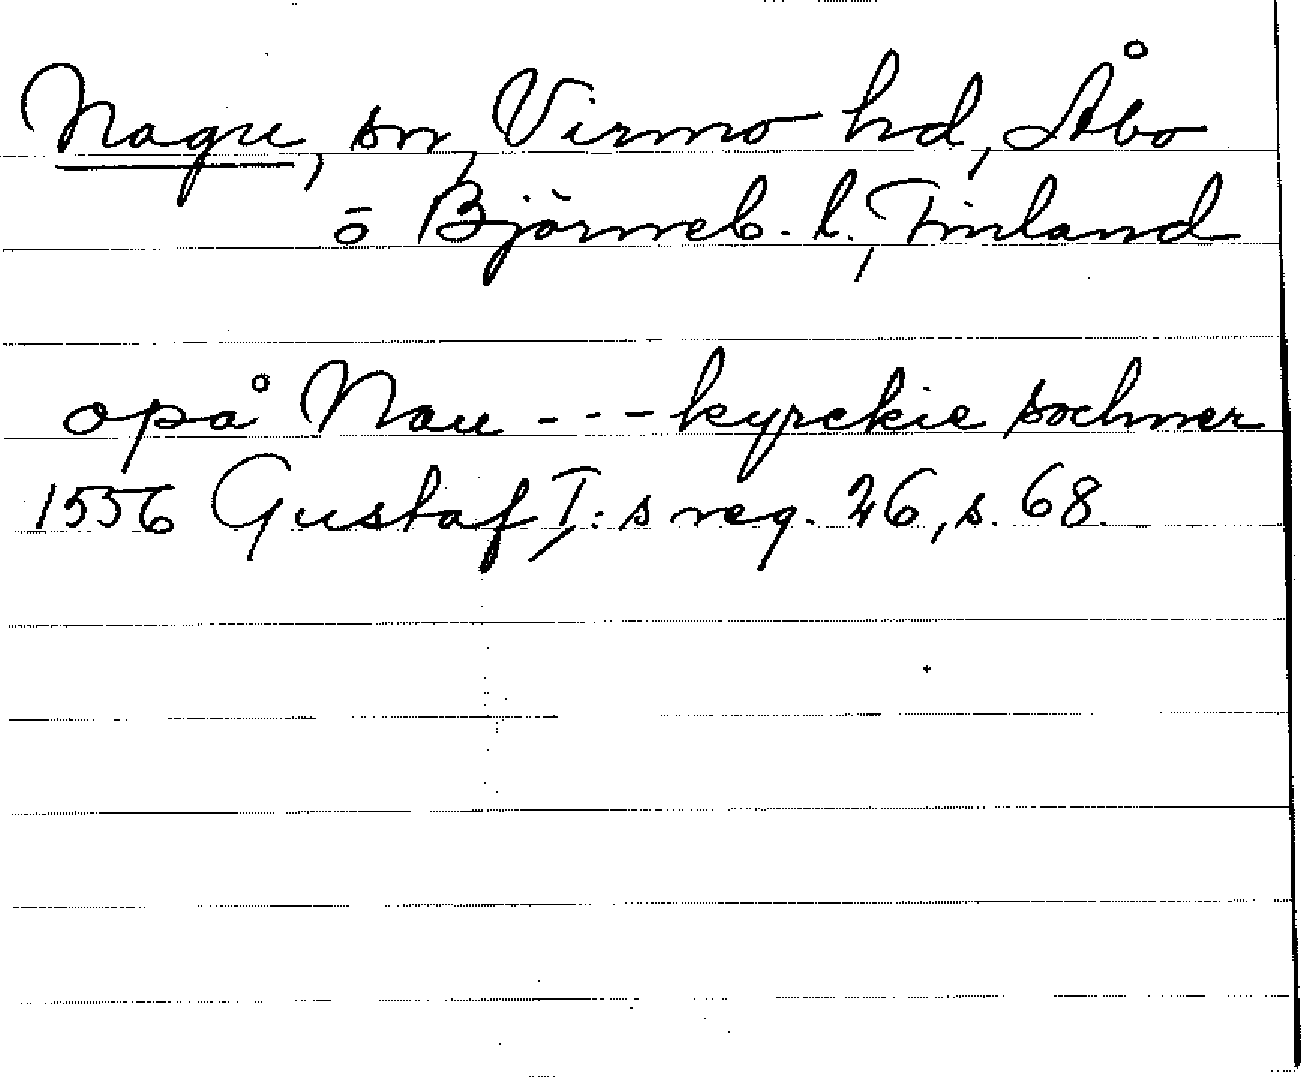 Nagu, sn, Virmo hd, Åbo
o Björneb. l., Finland
opå Nau --- kyrckie sochner
1556 Gustaf I:s reg. 26, s. 68.